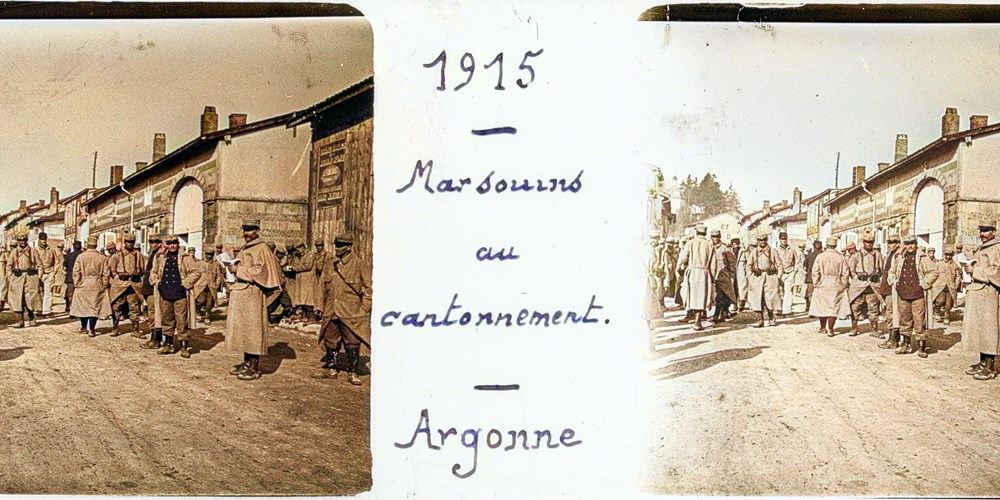 1915
Marsouins
au
cantonnement.
Argonne